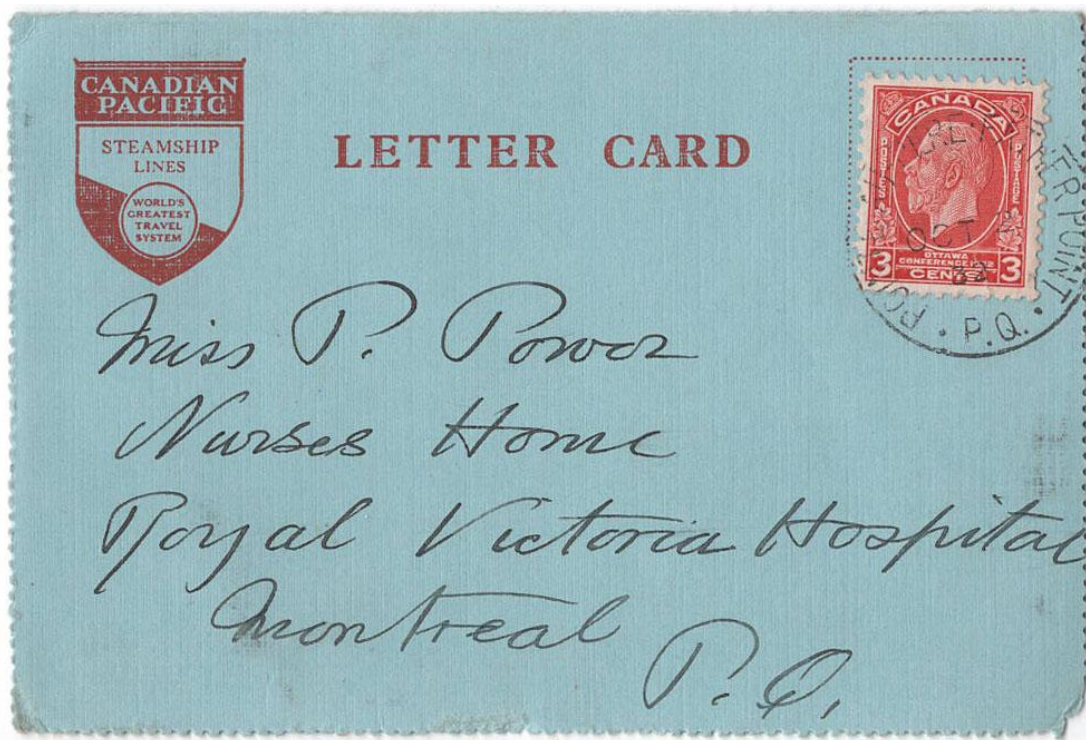 CANADIAN
PACIFIC
STEAMSHIP
LINES
WORLD'S
GREATEST
TRAVEL
SYSTEM
LETTER CARD
CANADA
POSTES
POSTAGE
OTTAWA
CONFERENCE 1932
3 CENTS 3
FATHER POINT
OCT
32
P.Q.
Miss P. Power
Nurses Home
Royal Victoria Hospital
Montreal
P.Q.